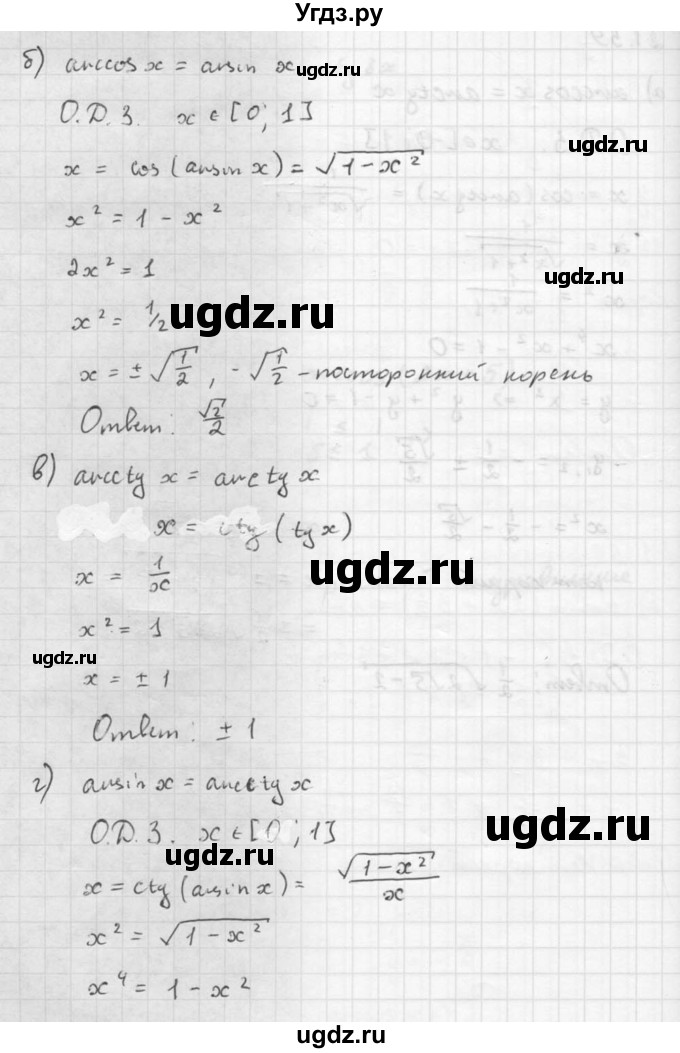 Угдз.ру
б) arccos x = arcsin x
ugdz.ru
О.Д.З. x ∈ [0; 1]
ugdz.ru
x = cos (arcsin x) = √(1 - x²)
x² = 1 - x²
2x² = 1
ugdz.ru
x² = 1/2
ugdz.ru
x = ± √(1/2), - √(1/2) - посторонний корень
Ответ: √2/2
в) arcctg x = arctg x
x = ctg (tg x)
ugdz.ru
x = 1/x
x² = 1
ugdz.ru
x = ± 1
Ответ: ± 1
г) arcsin x = arcctg x
О.Д.З. x ∈ [0; 1]
ugdz.ru
ugdz.ru
x = ctg (arcsin x) = √(1 - x²)/x
x² = √(1 - x²)
x⁴ = 1 - x²
ugdz.ru